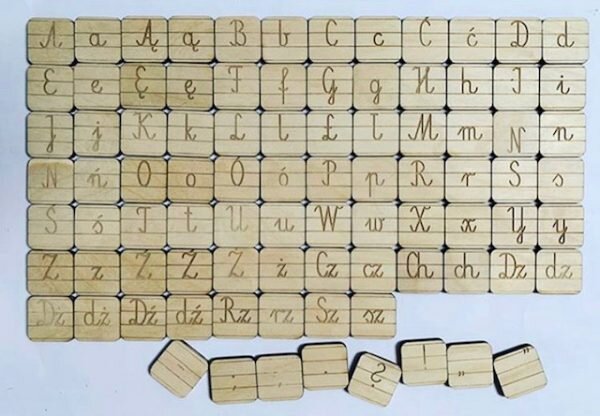 A a Ą ą B b C c Ć ć D d
E e Ę ę F f G g H h I i
J j K k L l Ł ł M m N n
Ń ń O o Ó ó P p R r S s
Ś ś T t U u W w X x Y y
Z z Ź Ź Ż ż Cz cz Ch ch Dz dz
Dż dż Dź dź Rz rz Sz sz
- ; : . ? ! „ ”